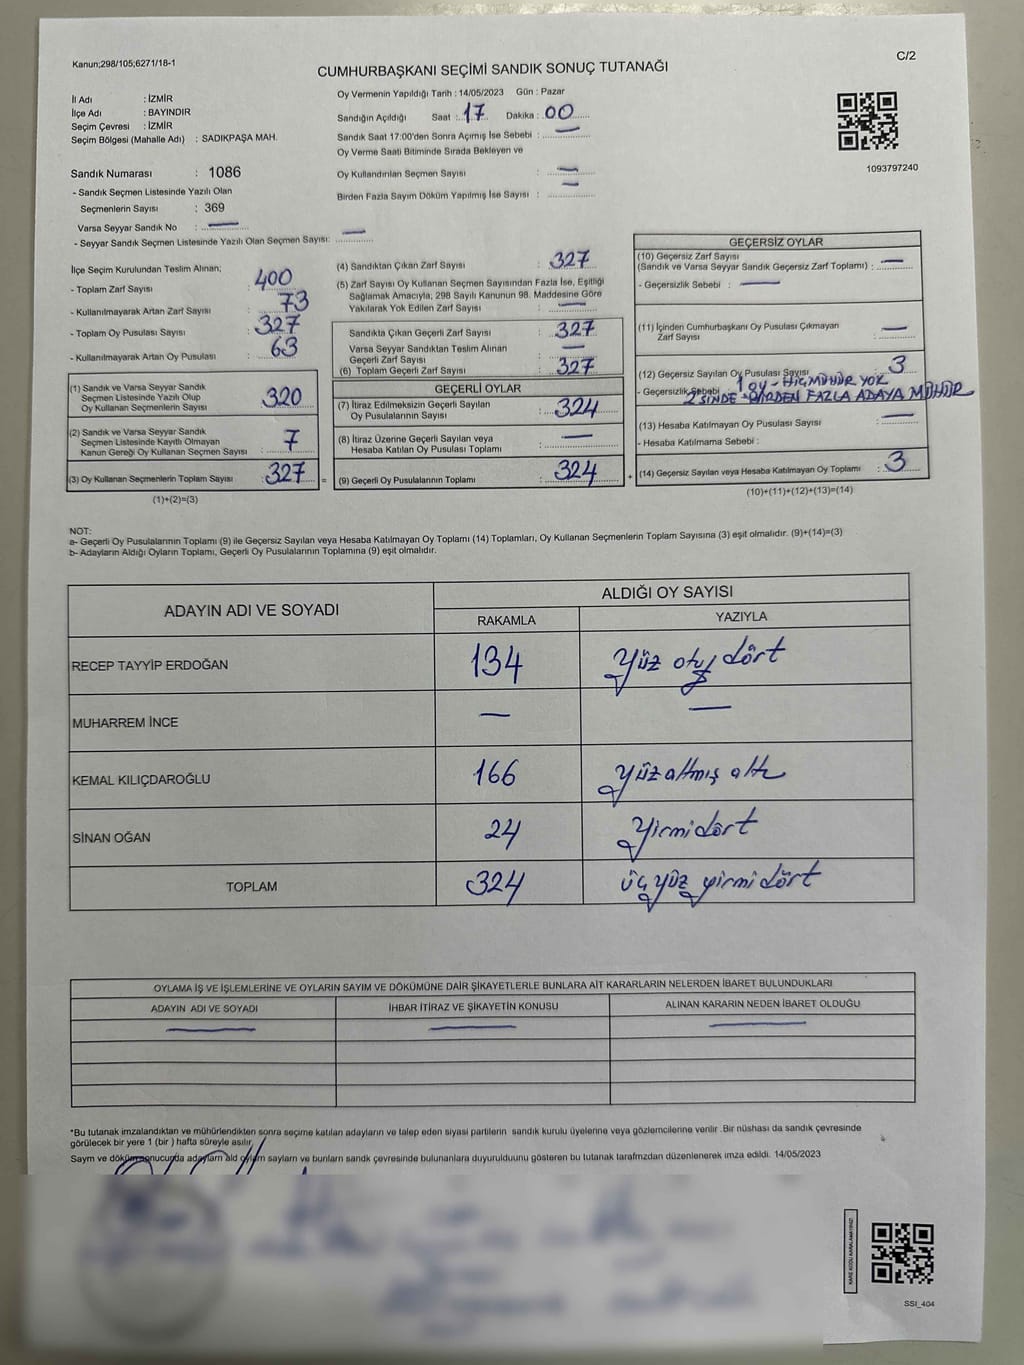 Kanun;298/105;6271/18-1
C/2
CUMHURBAŞKANI SEÇİMİ SANDIK SONUÇ TUTANAĞI
İl Adı : İZMİR
İlçe Adı : BAYINDIR
Seçim Çevresi : İZMİR
Seçim Bölgesi (Mahalle Adı) : SADIKPAŞA MAH.
Sandık Numarası : 1086
- Sandık Seçmen Listesinde Yazılı Olan
Seçmenlerin Sayısı : 369
Varsa Seyyar Sandık No : —
- Seyyar Sandık Seçmen Listesinde Yazılı Olan Seçmen Sayısı: —
Oy Vermenin Yapıldığı Tarih : 14/05/2023 Gün : Pazar
Sandığın Açıldığı Saat : 17 Dakika : 00
Sandık Saat 17:00'den Sonra Açımış İse Sebebi : —
Oy Verme Saati Bitiminde Sırada Bekleyen ve
Oy Kullandırılan Seçmen Sayısı : —
Birden Fazla Sayım Döküm Yapılmış İse Sayısı : —
1093797240
İlçe Seçim Kurulundan Teslim Alınan;
- Toplam Zarf Sayısı : 400
- Kullanılmayarak Artan Zarf Sayısı : 73
- Toplam Oy Pusulası Sayısı : 327
- Kullanılmayarak Artan Oy Pusulası : 63
(1) Sandık ve Varsa Seyyar Sandık
Seçmen Listesinde Yazılı Olup
Oy Kullanan Seçmenlerin Sayısı : 320
(2) Sandık ve Varsa Seyyar Sandık
Seçmen Listesinde Kayıtlı Olmayan
Kanun Gereği Oy Kullanan Seçmen Sayısı : 7
(3) Oy Kullanan Seçmenlerin Toplam Sayısı : 327 =
(1)+(2)=(3)
(4) Sandıktan Çıkan Zarf Sayısı : 327
(5) Zarf Sayısı Oy Kullanan Seçmen Sayısından Fazla İse, Eşitliği
Sağlamak Amacıyla; 298 Sayılı Kanunun 98. Maddesine Göre
Yakılarak Yok Edilen Zarf Sayısı : —
Sandıkta Çıkan Geçerli Zarf Sayısı : 327
Varsa Seyyar Sandıktan Teslim Alınan
Geçerli Zarf Sayısı : —
(6) Toplam Geçerli Zarf Sayısı : 327
GEÇERLİ OYLAR
(7) İtiraz Edilmeksizin Geçerli Sayılan
Oy Pusulalarının Sayısı : 324
(8) İtiraz Üzerine Geçerli Sayılan veya
Hesaba Katılan Oy Pusulası Toplamı : —
(9) Geçerli Oy Pusulalarının Toplamı : 324 +
GEÇERSİZ OYLAR
(10) Geçersiz Zarf Sayısı
(Sandık ve Varsa Seyyar Sandık Geçersiz Zarf Toplamı) : —
- Geçersizlik Sebebi : —
(11) İçinden Cumhurbaşkanı Oy Pusulası Çıkmayan
Zarf Sayısı : —
(12) Geçersiz Sayılan Oy Pusulası Sayısı : 3
- Geçersizlik Sebebi : 1 OY - HİÇ MÜHÜR YOK
2 SİNDE - BİRDEN FAZLA ADAYA MÜHÜR
(13) Hesaba Katılmayan Oy Pusulası Sayısı : —
- Hesaba Katılmama Sebebi :
(14) Geçersiz Sayılan veya Hesaba Katılmayan Oy Toplamı : 3
(10)+(11)+(12)+(13)=(14)
NOT:
a- Geçerli Oy Pusulalarının Toplamı (9) ile Geçersiz Sayılan veya Hesaba Katılmayan Oy Toplamı (14) Toplamları, Oy Kullanan Seçmenlerin Toplam Sayısına (3) eşit olmalıdır. (9)+(14)=(3)
b- Adayların Aldığı Oyların Toplamı, Geçerli Oy Pusulalarının Toplamına (9) eşit olmalıdır.
ADAYIN ADI VE SOYADI ALDIĞI OY SAYISI
RAKAMLA YAZIYLA
RECEP TAYYİP ERDOĞAN 134 Yüz otuz dört
MUHARREM İNCE — —
KEMAL KILIÇDAROĞLU 166 Yüzaltmış altı
SİNAN OĞAN 24 Yirmidört
TOPLAM 324 üçyüz yirmidört
OYLAMA İŞ VE İŞLEMLERİNE VE OYLARIN SAYIM VE DÖKÜMÜNE DAİR ŞİKAYETLERLE BUNLARA AİT KARARLARIN NELERDEN İBARET BULUNDUKLARI
ADAYIN ADI VE SOYADI İHBAR İTİRAZ VE ŞİKAYETİN KONUSU ALINAN KARARIN NEDEN İBARET OLDUĞU
— — —
*Bu tutanak imzalandıktan ve mühürlendikten sonra seçime katılan adayların ve talep eden siyasi partilerin sandık kurulu üyelerine veya gözlemcilerine verilir .Bir nüshası da sandık çevresinde
görülecek bir yere 1 (bir ) hafta süreyle asılır.
Sayım ve döküm sonucunda adayların ald oyların sayların ve bunların sandk çevresinde bulunanlara duyurulduunu gösteren bu tutanak tarafmzdan düzenlenerek imza edildi. 14/05/2023
KARE KODU KARALAMAYINIZ!
SSI_404